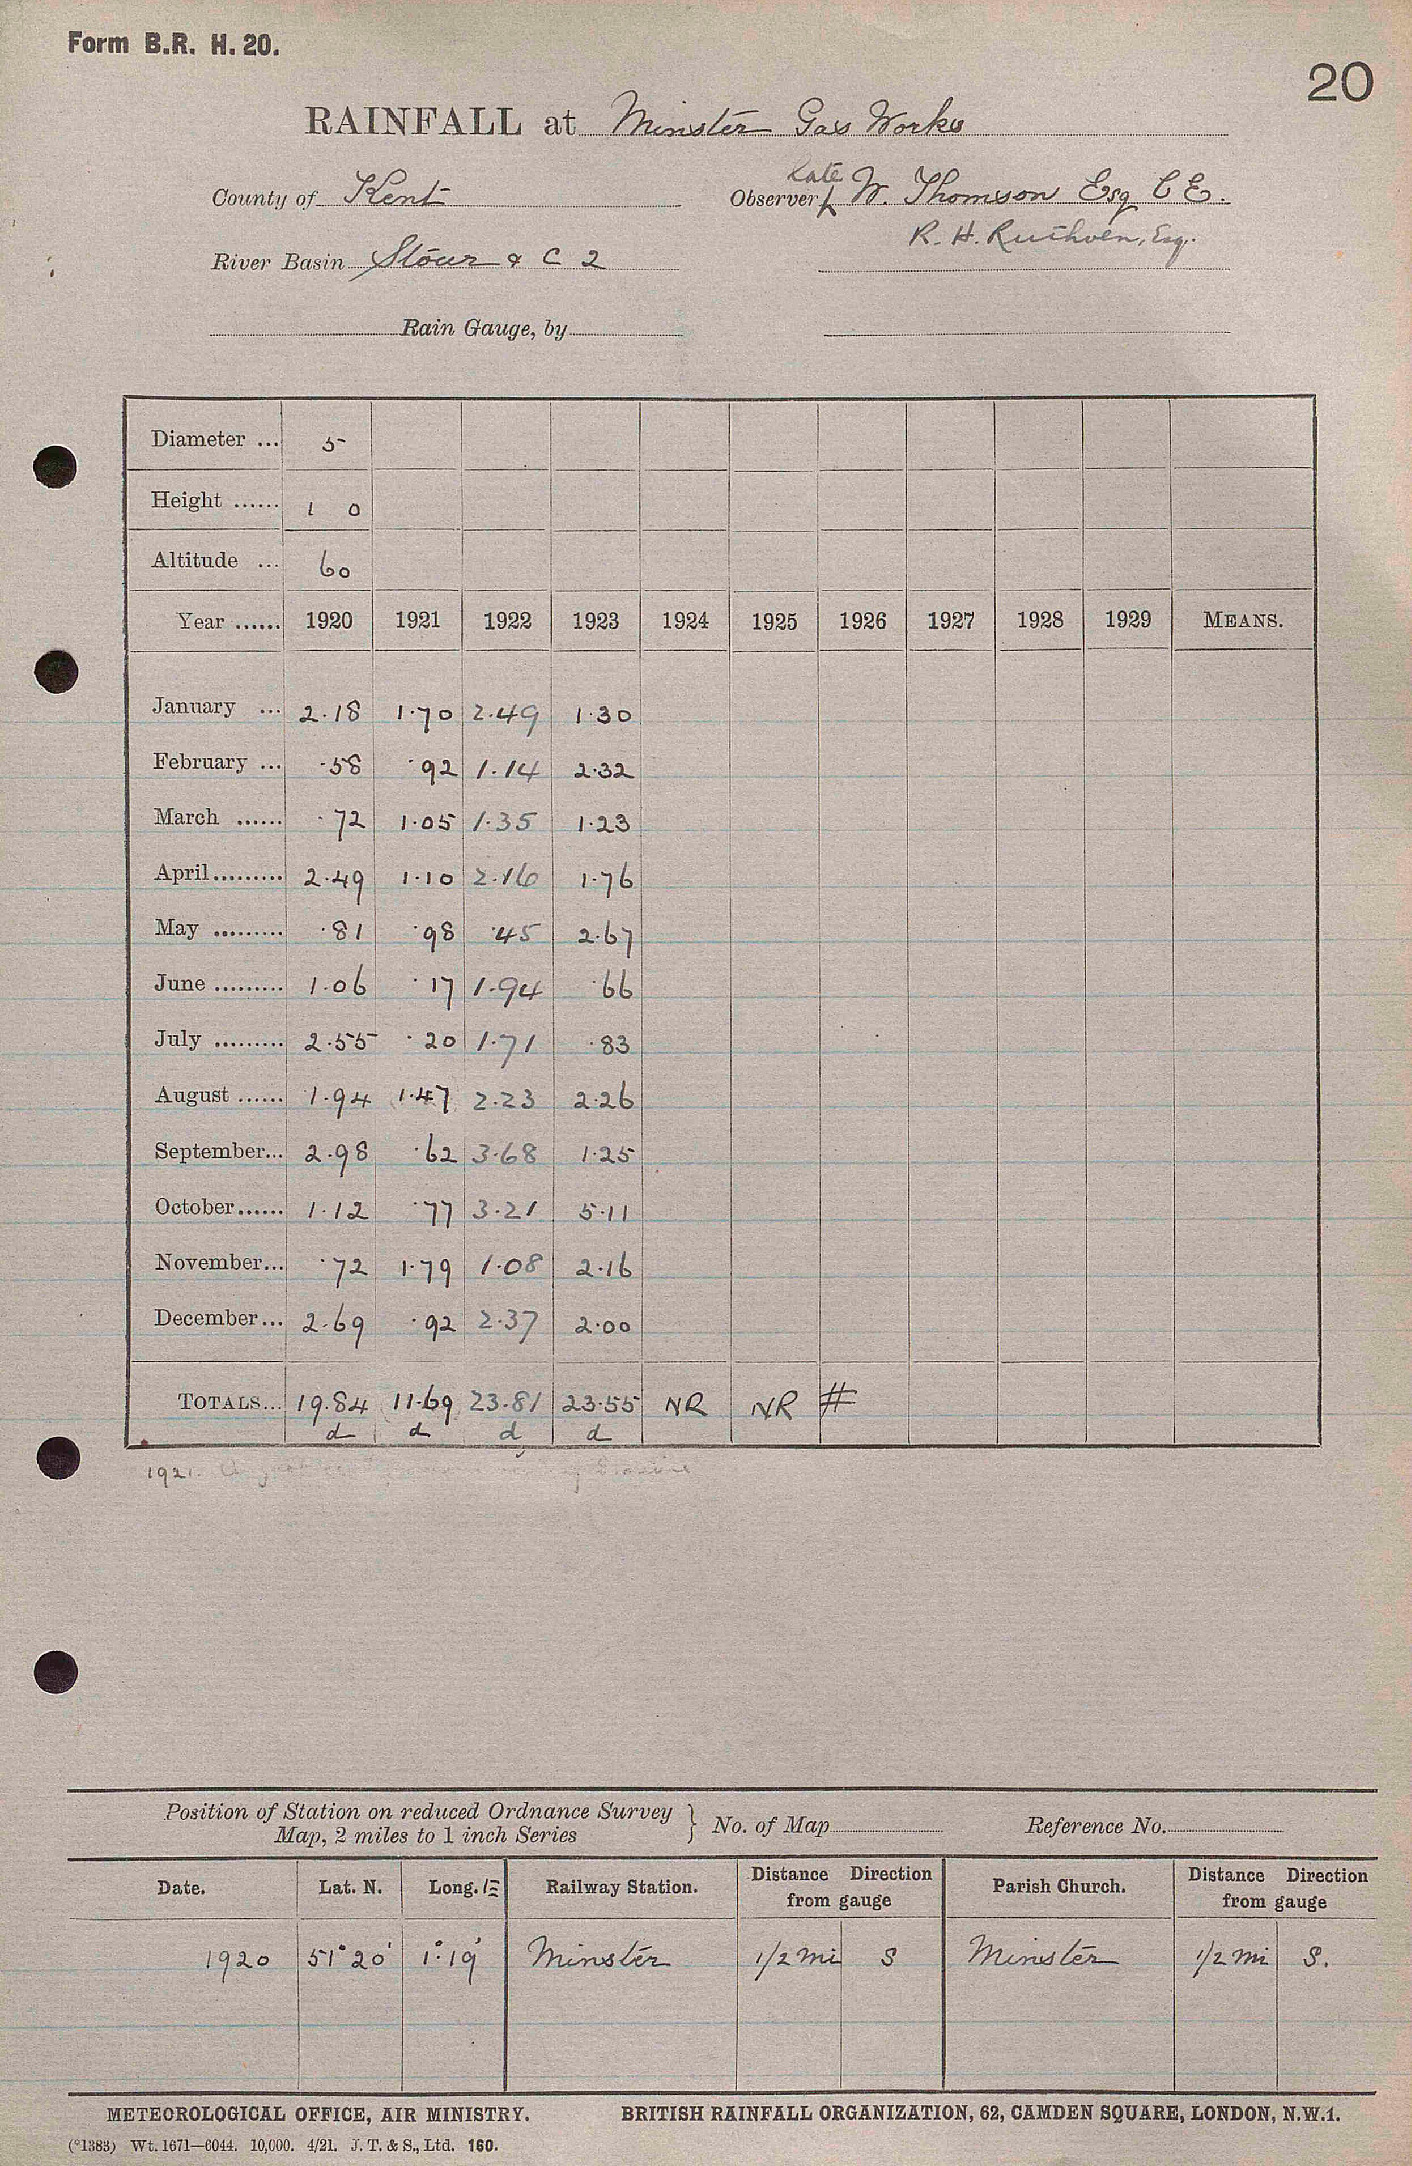 Form B.R. H. 20.
20
RAINFALL at Minster Gas Works
County of Kent
late
Observer W. Thomson Esq C E.
R. H. Ruthven, Esq.
River Basin Stour & C 2
Rain Gauge, by
Diameter ... 5
Height ...... 1 0
Altitude ... 60
Year ...... 1920 1921 1922 1923 1924 1925 1926 1927 1928 1929 MEANS.
January ... 2.18 1.70 2.49 1.30
February ... .58 .92 1.14 2.32
March ...... .72 1.05 1.35 1.23
April ......... 2.49 1.10 2.16 1.76
May ......... .81 .98 .45 2.67
June ......... 1.06 .17 1.94 .66
July ......... 2.55 .20 1.71 .83
August ...... 1.94 1.47 2.23 2.26
September... 2.98 .62 3.68 1.25
October...... 1.12 .77 3.21 5.11
November... .72 1.79 1.08 2.16
December... 2.69 .92 2.37 2.00
TOTALS... 19.84 11.69 23.81 23.55 NR NR #
d d d d
1921.
Position of Station on reduced Ordnance Survey
Map, 2 miles to 1 inch Series } No. of Map Reference No.
Date. Lat. N. Long. E Railway Station. Distance Direction from gauge Parish Church. Distance Direction from gauge
1920 51° 20' 1° 19' Minster 1/2 mi S Minster 1/2 mi S.
METEOROLOGICAL OFFICE, AIR MINISTRY. BRITISH RAINFALL ORGANIZATION, 62, CAMDEN SQUARE, LONDON, N.W.1.
(*1383) Wt. 1671—6044. 10,000. 4/21. J. T. & S., Ltd. 160.